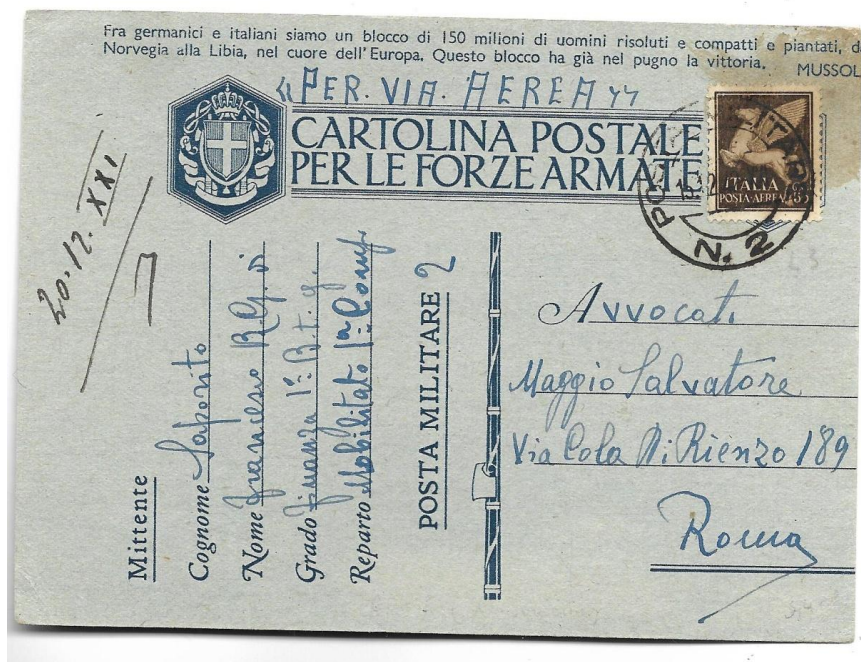 Fra germanici e italiani siamo un blocco di 150 milioni di uomini risoluti e compatti e piantati, d
Norvegia alla Libia, nel cuore dell'Europa. Questo blocco ha già nel pugno la vittoria. MUSSOL
"PER. VIA. AEREA"
CARTOLINA POSTALE
PER LE FORZE ARMATE
ITALIA
POSTA-AEREA
N. 2
20.12.XXI
Mittente
Cognome Saporito
Nome Francesco R.G. di
Grado Finanza 1º B.t.g.
Reparto Mobilitato 1ª Comp.
POSTA MILITARE 2
Avvocati
Maggio Salvatore
Via Cola Di Rienzo 189
Roma